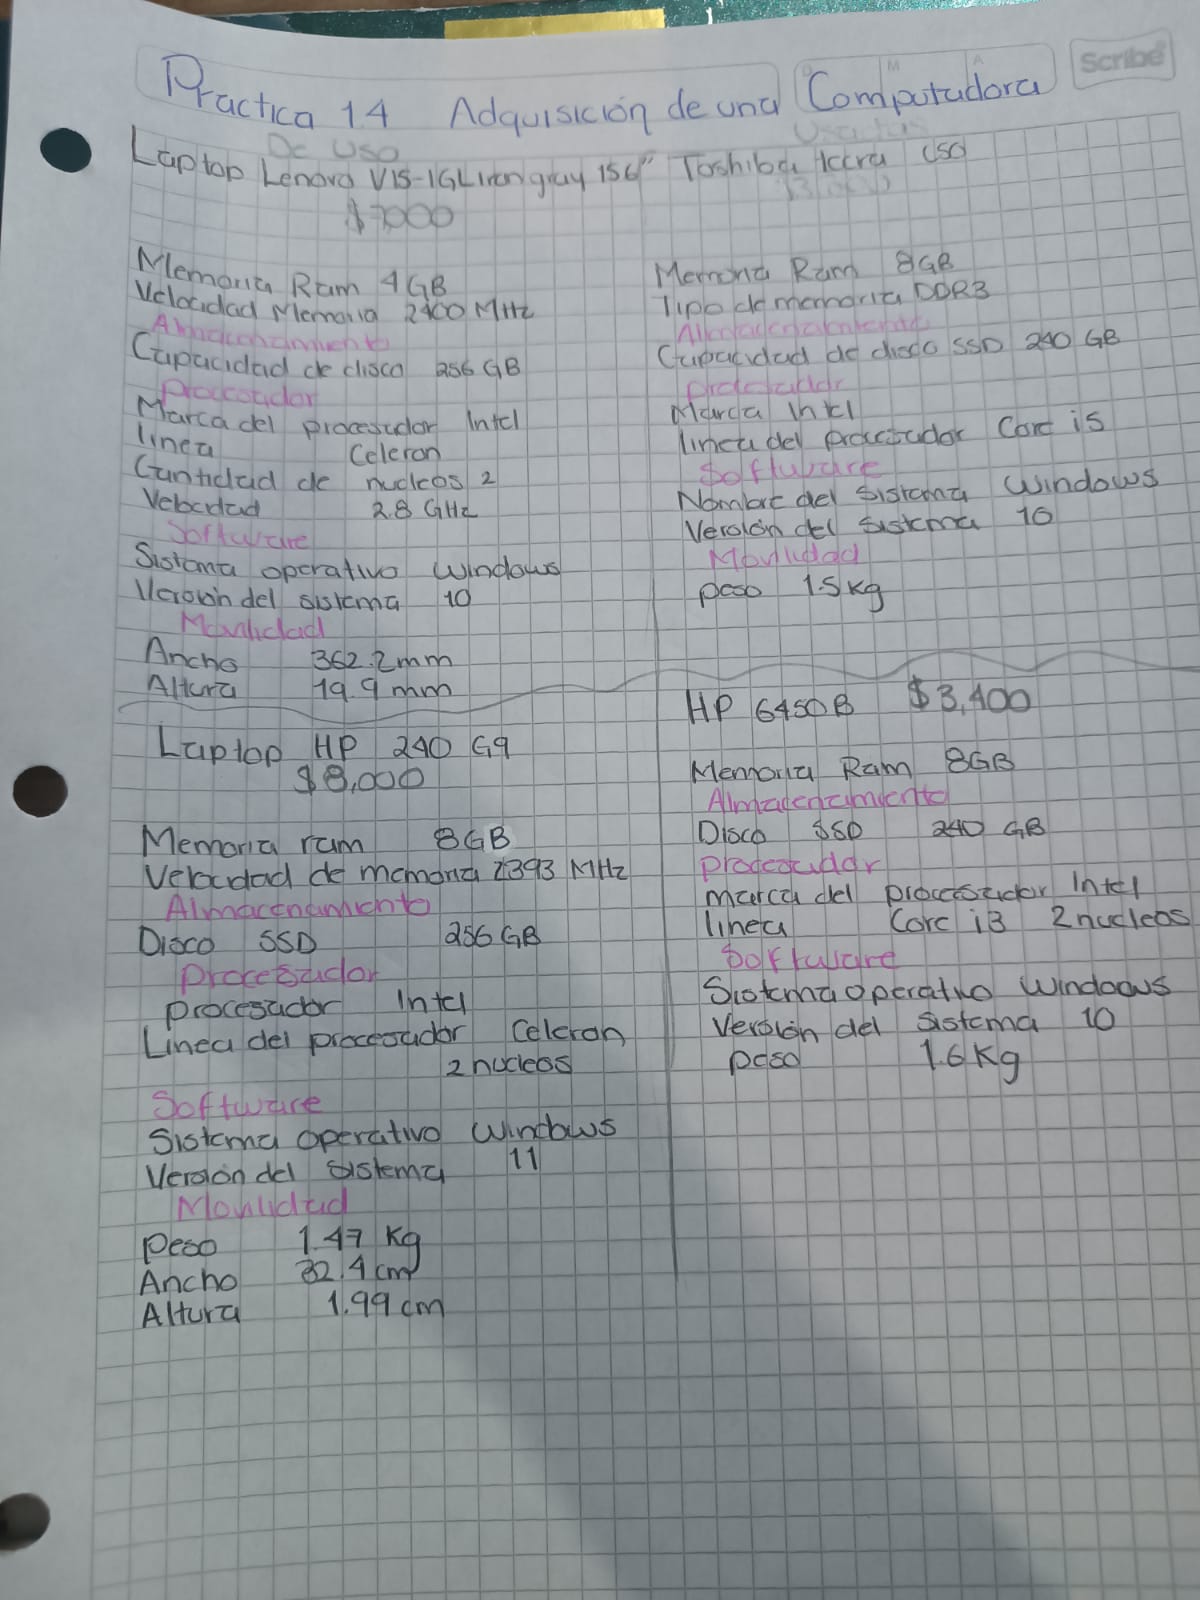 Scribe
Practica 1.4 Adquisición de una Computadora
De uso
Usadas
Laptop Lenovo V15-IGL Iron gray 15.6"
$7000
Memoria Ram 4GB
Velocidad Memoria 2400 MHz
Almacenamiento
Capacidad de disco 256 GB
Procesador
Marca del procesador Intel
linea Celeron
Cantidad de nucleos 2
Velocidad 2.8 GHz
Software
Sistema operativo Windows
Version del sistema 10
Movilidad
Ancho 362.2mm
Altura 19.9mm
Laptop HP 240 G9
$8,000
Memoria ram 8GB
Velocidad de memoria 2393 MHz
Almacenamiento
Disco SSD 256 GB
Procesador
procesador Intel
Linea del procesador Celeron
2 nucleos
Software
Sistema operativo Windows
Versión del sistema 11
Movilidad
Peso 1.47 Kg
Ancho 32.4cm
Altura 1.99cm
Toshiba
Memoria Ram 8GB
Tipo de memoria DDR3
Almacenamiento
Capacidad de disco SSD 240 GB
procesador
Marca Intel
linea del procesador Core i5
Software
Nombre del sistema Windows
Versión del sistema 10
Movilidad
peso 1.5kg
HP 6450B $3,400
Memoria Ram 8GB
Almacenamiento
Disco SSD 240 GB
procesador
marca del procesador Intel
linea Core i3 2nucleos
Software
Sistema operativo Windows
Versión del sistema 10
peso 1.6Kg